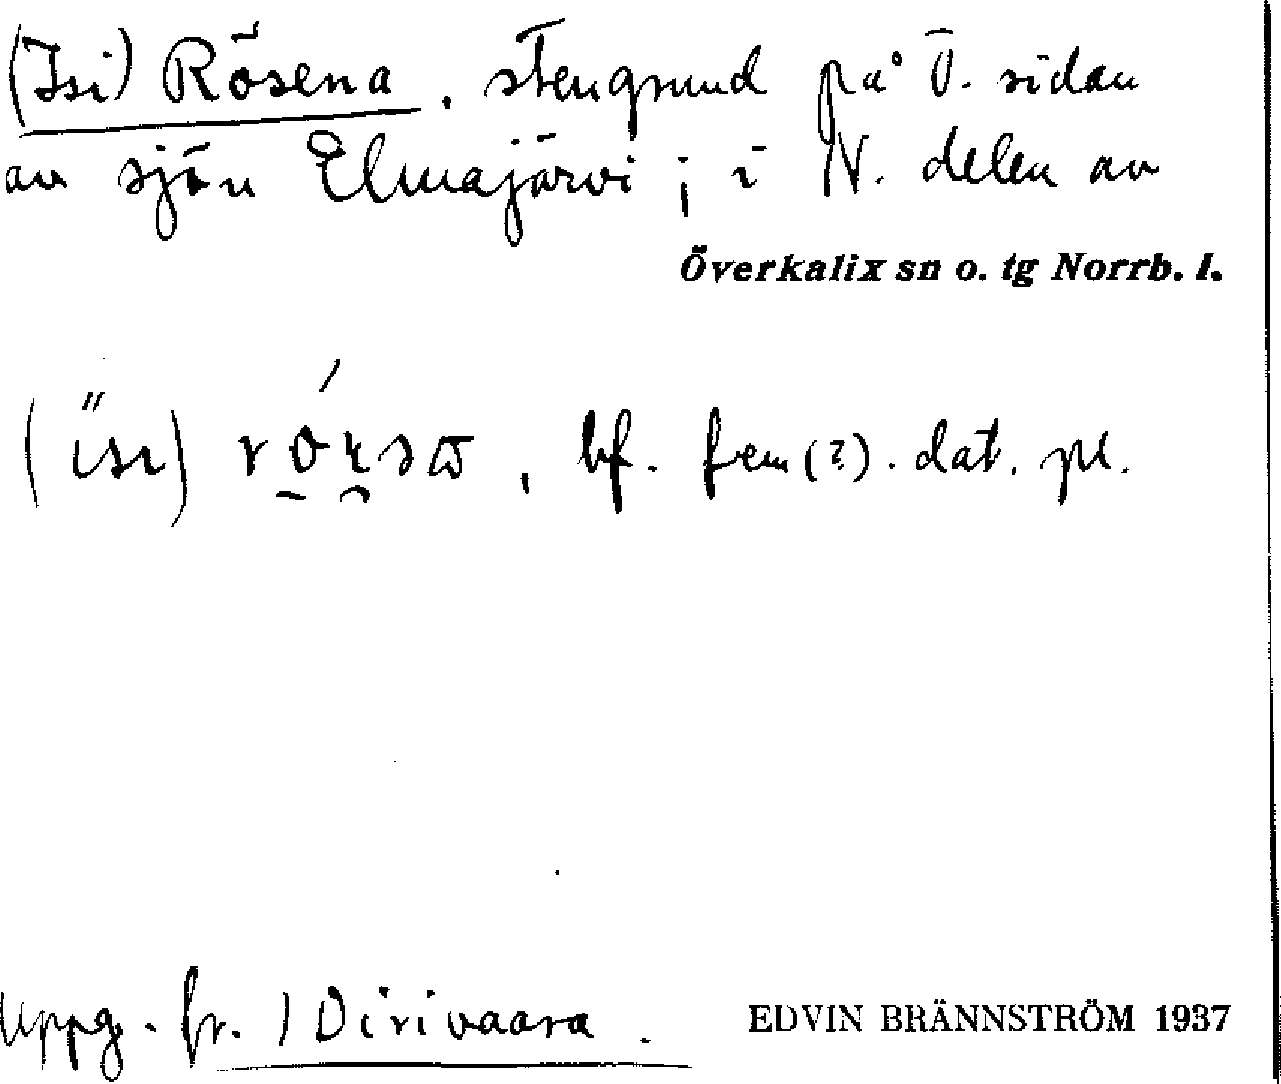 (Isi) Rösena, stengrund på Ö. sidan
av sjön Elmajärvi; i N. delen av
Överkalix sn o. tg Norrb. l.
bf. fem(?). dat. pl.
Uppg. fr. Dirivaara.
EDVIN BRÄNNSTRÖM 1937